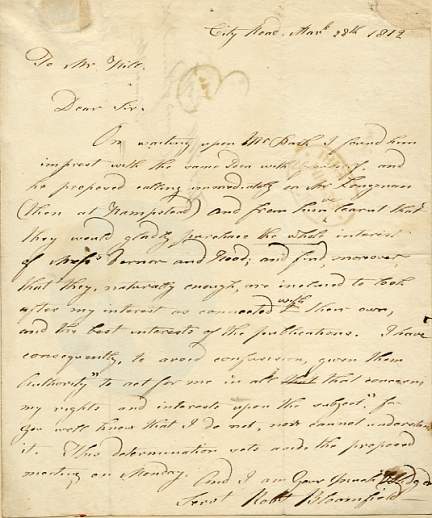 City Road. Mar. 28th 1812
To Mr Hill.
Dear Sir.
On waiting upon Mr Park I found him
imprest with the same Idea with yourself, and
he proposed calling immediately on Mr Longman
(then at Hampstead) and from him learnt that
they would gladly purchase the whole interest
of Messrs Vernor and Hood; and find, moreover,
that they, naturally enough, are inclined to look
after my interest as connected with their own,
and the best interests of the publications. I have
consequently, to avoid confusion, given them
Authority" to act for me in all that concerns
my rights and interests upon the subject" for
you well know that I do not, nor cannot understand
it. This determination sets aside the proposed
meeting on Monday. And I am Your much
Servt Robt Bloomfield